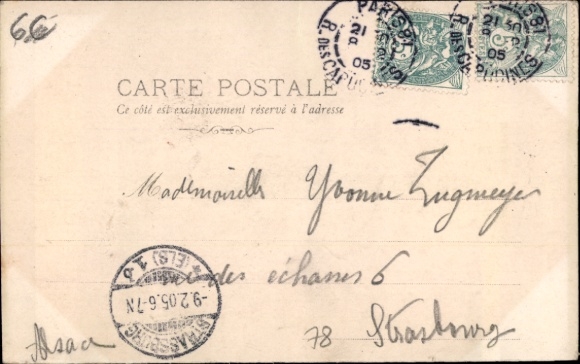 6€
PARIS 81
21
05
R. DES CAPUCINES
PARIS 81
21
05
R. DES CAPUCINES
CARTE POSTALE
Ce côté est exclusivement réservé à l'adresse
Mademoiselle Yvonne Zugmeyer
des échasses 6
78 Strasbourg
Alsace
STRASSBURG
-9.2.05.6-7N
(ELS) 1